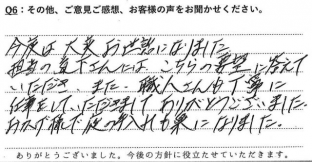 Q6：その他、ご意見ご感想、お客様の声をお聞かせください。
今度は大変お世話になりました
担当の真下さんには こちらの要望に答えて
いただき、また 職人さんも丁寧に
仕事をしていただきまして ありがとうございました。
おかげ様で 庭の手入れも楽になりました。
ありがとうございました。今後の方針に役立たせていただきます。